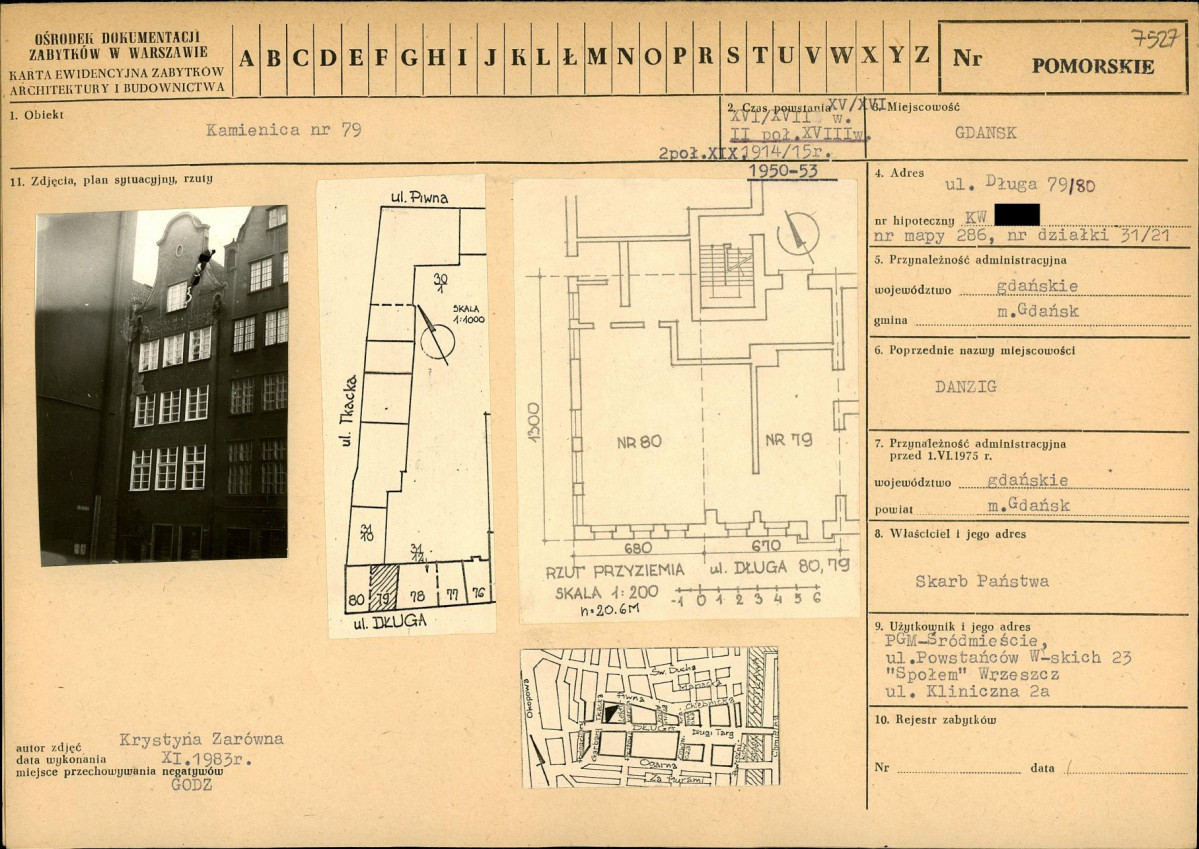 OŚRODEK DOKUMENTACJI
ZABYTKÓW W WARSZAWIE
KARTA EWIDENCYJNA ZABYTKÓW
ARCHITEKTURY I BUDOWNICTWA
A B C D E F G H I J K L Ł M N O P R S T U V W X Y Z
Nr
7527
POMORSKIE
1. Obiekt
Kamienica nr 79
2. Czas powstania XV/XVI
XVI/XVII w.
II poł.XVIIIw.
2poł.XIX,1914/15r.
1950-53
3. Miejscowość
GDANSK
11. Zdjęcia, plan sytuacyjny, rzuty
4. Adres
ul. Długa 79/80
nr hipoteczny KW
nr mapy 286, nr działki 31/21
5. Przynależność administracyjna
województwo gdańskie
gmina m.Gdańsk
6. Poprzednie nazwy miejscowości
DANZIG
7. Przynależność administracyjna
przed 1.VI.1975 r.
województwo gdańskie
powiat m.Gdańsk
8. Właściciel i jego adres
Skarb Państwa
9. Użytkownik i jego adres
PGM-Śródmieście,
ul.Powstańców W-skich 23
"Społem" Wrzeszcz
ul. Kliniczna 2a
10. Rejestr zabytków
Nr data
ul. Piwna
30
1
SKALA
1:1000
ul. Tkacka
31
10
31
12
80 79 78 77 76
ul. DŁUGA
1300
NR 80
NR 79
680 670
RZUT PRZYZIEMIA ul. DŁUGA 80, 79
SKALA 1:200
-1 0 1 2 3 4 5 6
h=20.6M
Okopowa
Św. Ducha
Piwna
Chlebnicka
Tkacka
DŁUGA
Długi Targ
Garbary
Ogarna
Za Murami
autor zdjęć Krystyna Zarówna
data wykonania XI.1983r.
miejsce przechowywania negatywów
GODZ